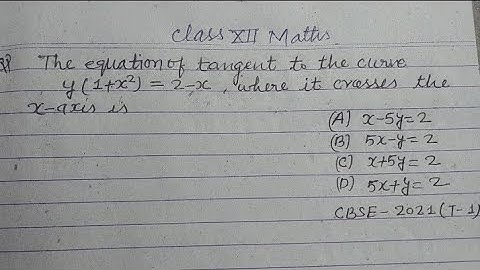 Class XII Maths
Q? The equation of tangent to the curve
y(1+x²) = 2-x, where it crosses the
x-axis is
(A) x-5y=2
(B) 5x-y=2
(C) x+5y=2
(D) 5x+y=2
CBSE-2021(T-1)